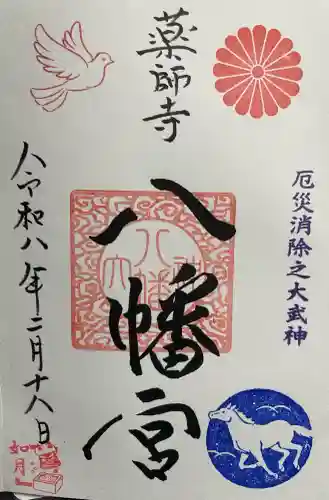 薬師寺
八幡宮
厄災消除之大武神
令和八年二月十八日
如月